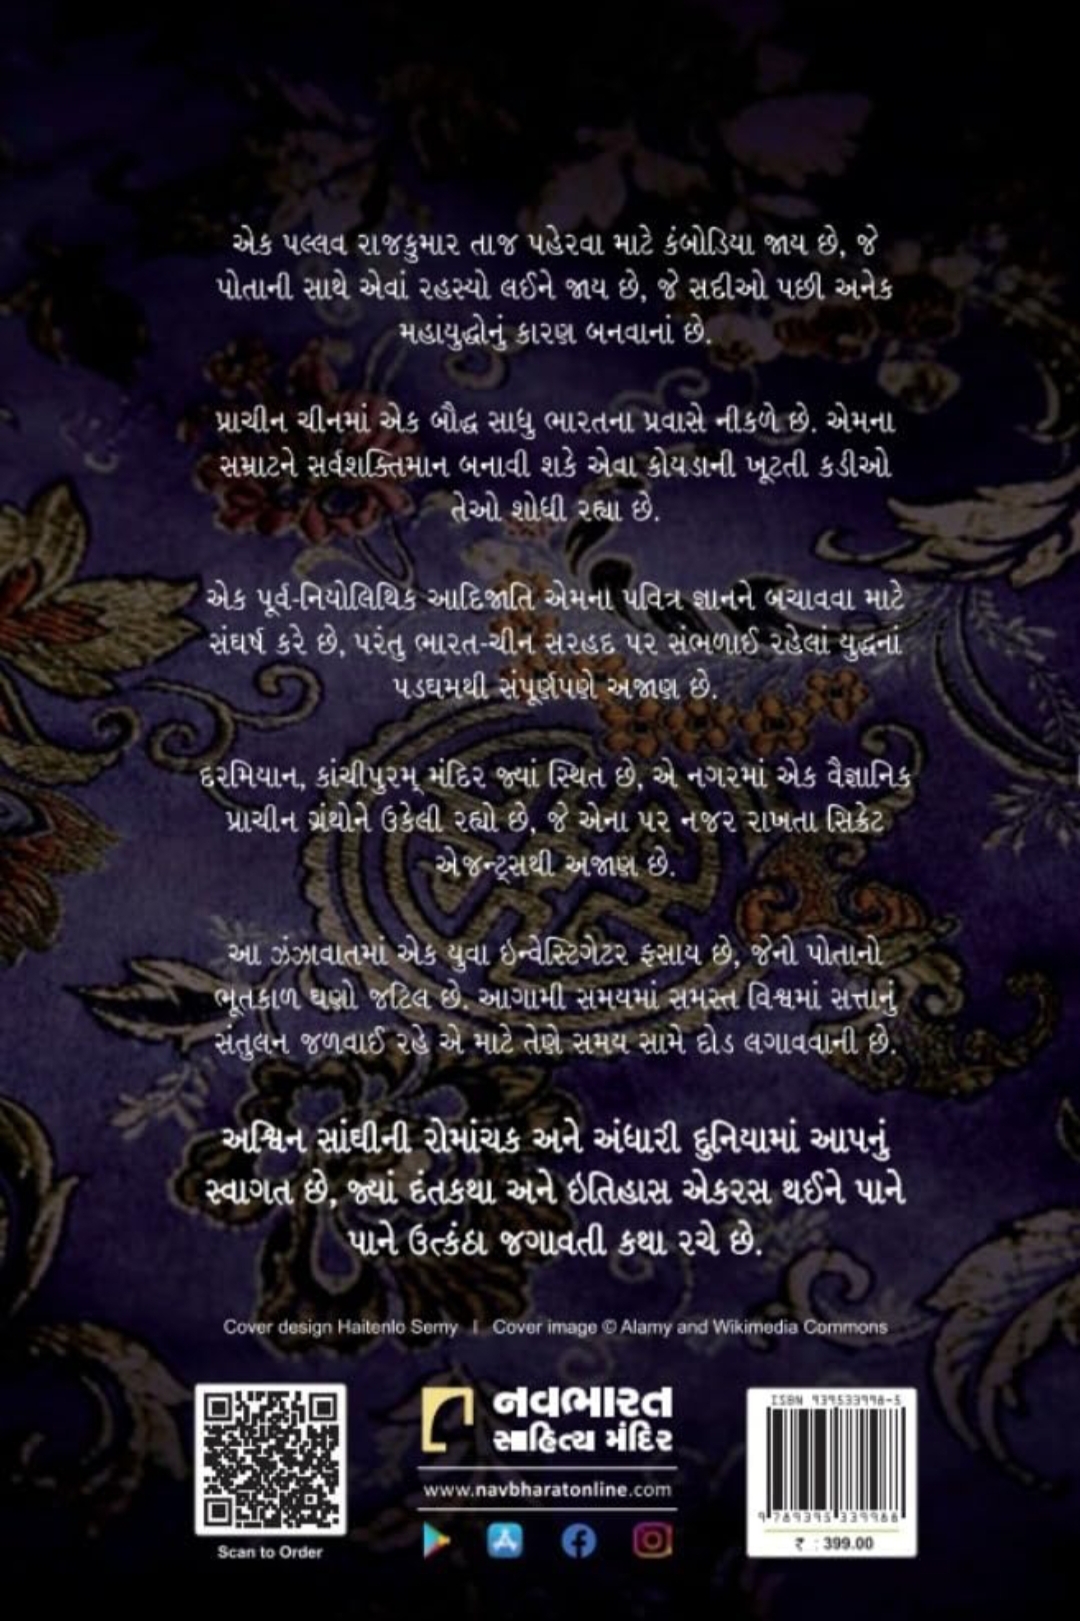 એક પલ્લવ રાજકુમાર તાજ પહેરવા માટે કંબોડિયા જાય છે, જે
પોતાની સાથે એવાં રહસ્યો લઈને જાય છે, જે સદીઓ પછી અનેક
મહાયુદ્ધોનું કારણ બનવાનાં છે.
પ્રાચીન ચીનમાં એક બૌદ્ધ સાધુ ભારતના પ્રવાસે નીકળે છે. એમના
સમ્રાટને સર્વશક્તિમાન બનાવી શકે એવા કોયડાની ખૂટતી કડીઓ
તેઓ શોધી રહ્યા છે.
એક પૂર્વ-નિયોલિથિક આદિજાતિ એમના પવિત્ર જ્ઞાનને બચાવવા માટે
સંઘર્ષ કરે છે, પરંતુ ભારત-ચીન સરહદ પર સંભળાઈ રહેલાં યુદ્ધનાં
પડઘમથી સંપૂર્ણપણે અજાણ છે.
દરમિયાન, કાંચીપુરમ્ મંદિર જ્યાં સ્થિત છે, એ નગરમાં એક વૈજ્ઞાનિક
પ્રાચીન ગ્રંથોને ઉકેલી રહ્યો છે, જે એના પર નજર રાખતા સિક્રેટ
એજન્ટ્સથી અજાણ છે.
આ ઝંઝાવાતમાં એક યુવા ઇન્વેસ્ટિગેટર ફસાય છે, જેનો પોતાનો
ભૂતકાળ ઘણો જટિલ છે. આગામી સમયમાં સમસ્ત વિશ્વમાં સત્તાનું
સંતુલન જળવાઈ રહે એ માટે તેણે સમય સામે દોડ લગાવવાની છે.
અશ્વિન સાંઘીની રોમાંચક અને અંધારી દુનિયામાં આપનું
સ્વાગત છે, જ્યાં દંતકથા અને ઇતિહાસ એકરસ થઈને પાને
પાને ઉત્કંઠા જગાવતી કથા રચે છે.
Cover design Haitenlo Semy I Cover image © Alamy and Wikimedia Commons
નવભારત
સાહિત્ય મંદિર
www.navbharatonline.com
Scan to Order
ISBN 939533998-5
9 789395 339986
₹ : 399.00